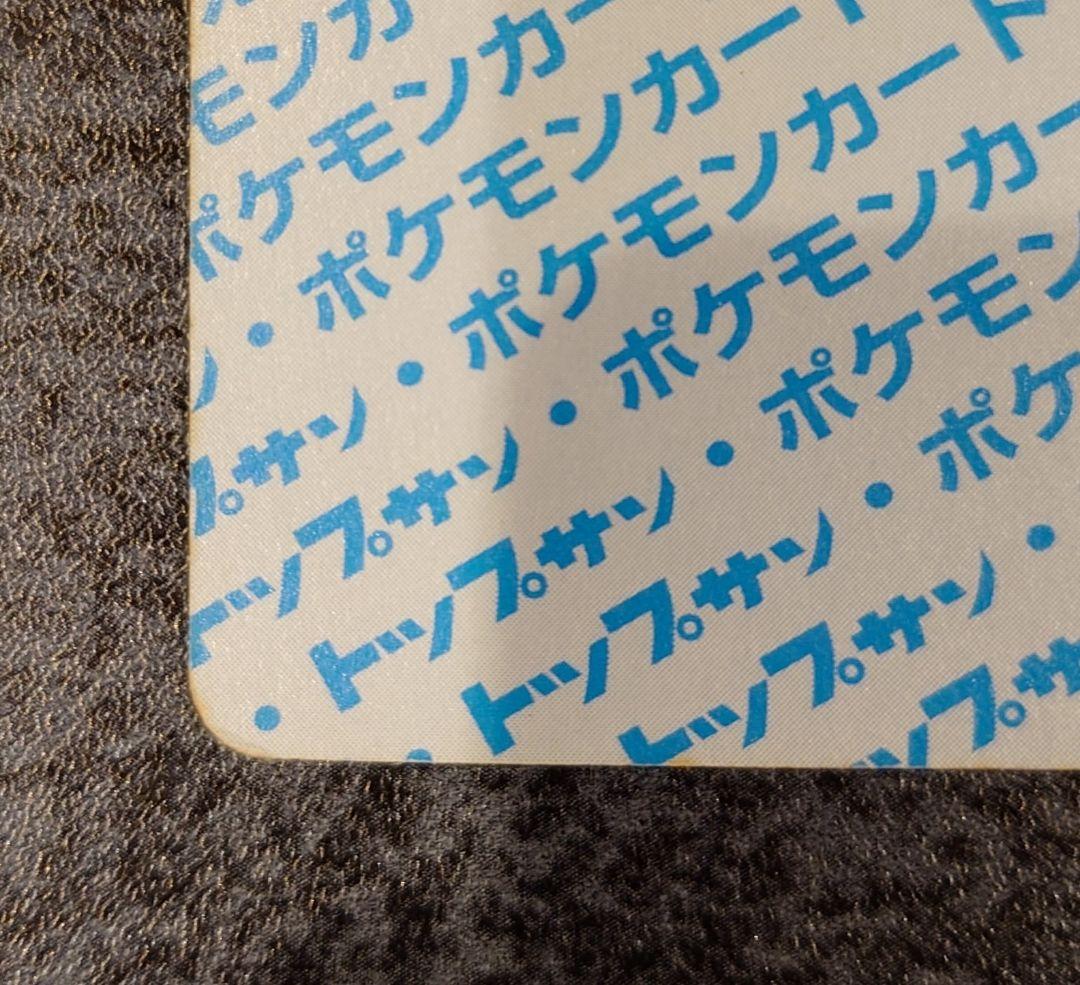 モンカ
ポケモンカー
ン・ポケモンカード
プサン・ポケモンカード
トップサン・ポケモンカー
・トップサン・ポケモン
・トップサン・ポケ
トップサン・
ップサ